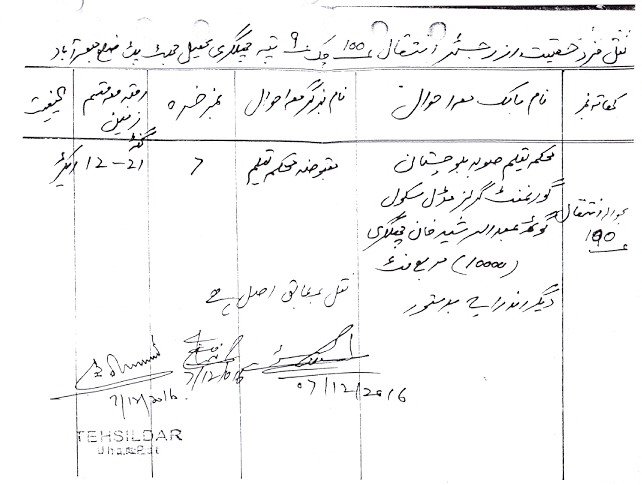 نقل فرد حقیقت از رجسٹر انتقال 100 چک 9 تپہ چھلگری تحصیل جھٹ پٹ ضلع جعفر آباد
کھاتہ نمبر
نام مالک معہ احوال
نام بزگر معہ احوال
نمبر خسرہ
رقبہ معہ قسم زمین
کیفیت
بحوالہ انتقال
100
محکمہ تعلیم صوبہ بلوچستان
گورنمنٹ گرلز مڈل سکول
گوٹھ عبدالرشید خان چھلگری
(10000) مربع فٹ
دیگر اندراج بدستور
مقبوضہ محکمہ تعلیم
7
21-12
ایکڑ
نقل بمطابق اصل ہے
07/12/2016
7/12/2016
7/12/2016
TEHSILDAR